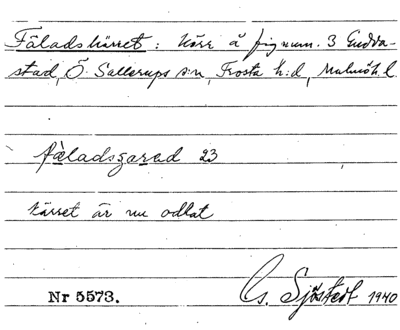 Fäladskärret : Kärr å fig num. 3 Gudda-
stad, Ö. Sallerups s:n, Frosta h:d, Malmöh. l.
fæladsgarad 23
Kärret är nu odlat
Nr 5573. Gs. Sjöstedt 1940